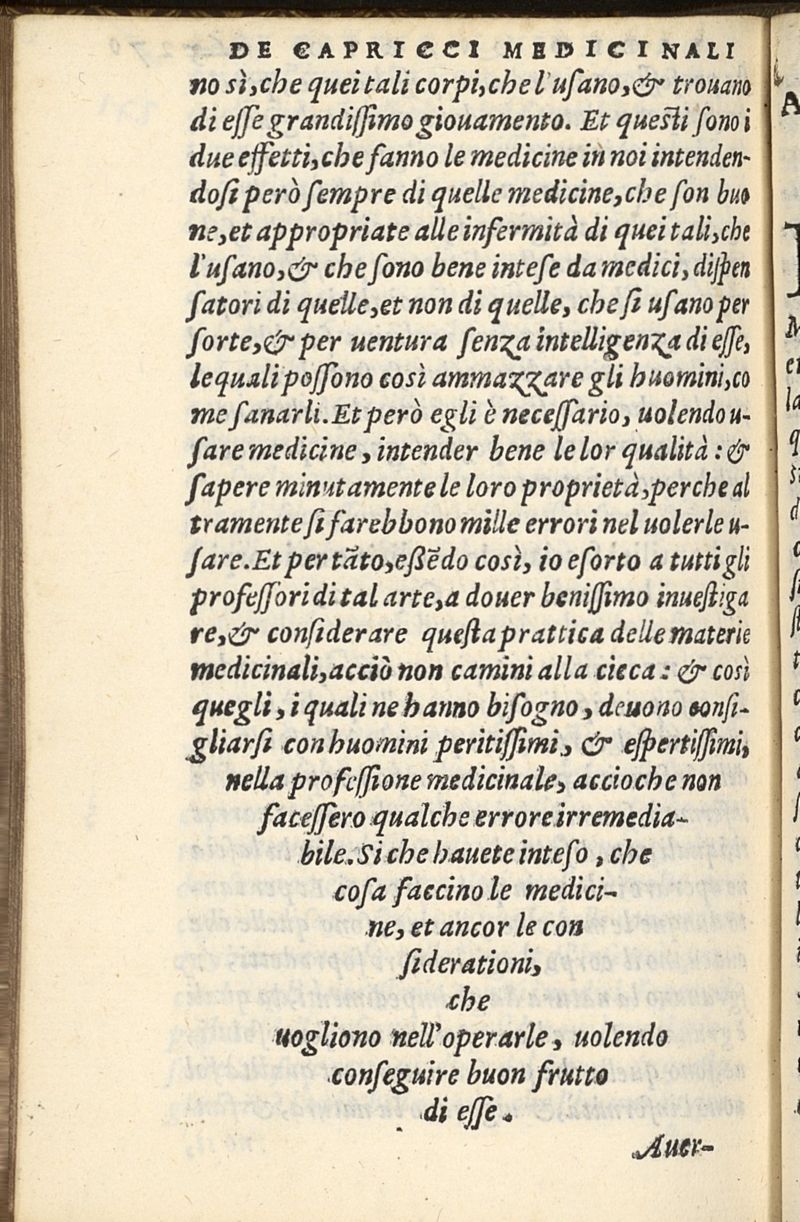 DE CAPRICCI MEDICINALI
no sì, che quei tali corpi, che l'uſano, & trouano
di eſſe grandiſſimo giouamento. Et queſti ſono i
due effetti, che fanno le medicine in noi intenden-
doſi però ſempre di quelle medicine, che ſon buo
ne, et appropriate alle infermità di quei tali, che
l'uſano, & che ſono bene inteſe da medici, diſpen
ſatori di quelle, et non di quelle, che ſi uſano per
ſorte, & per uentura ſenza intelligenza di eſſe,
le quali poſſono così ammazzare gli huomini, co
me ſanarli. Et però egli è neceſſario, uolendo u-
ſare medicine, intender bene le lor qualità: &
ſapere minutamente le loro proprietà, perche al
tramente ſi farebbono mille errori nel uolerle u-
ſare. Et per tãto, eſſẽdo così, io eſorto a tutti gli
profeſſori di tal arte, a douer beniſſimo inueſtiga
re, & conſiderare queſta prattica delle materie
medicinali, acciò non camini alla cieca: & così
quegli, i quali ne hanno biſogno, deuono conſi-
gliarſi con huomini peritiſſimi, & eſpertiſſimi,
nella profeſſione medicinale, accioche non
faceſſero qualche errore irremedia-
bile. Si che hauete inteſo, che
coſa faccino le medici-
ne, et ancor le con
ſiderationi,
che
uogliono nell'operarle, uolendo
conſeguire buon frutto
di eſſe.
Auer-